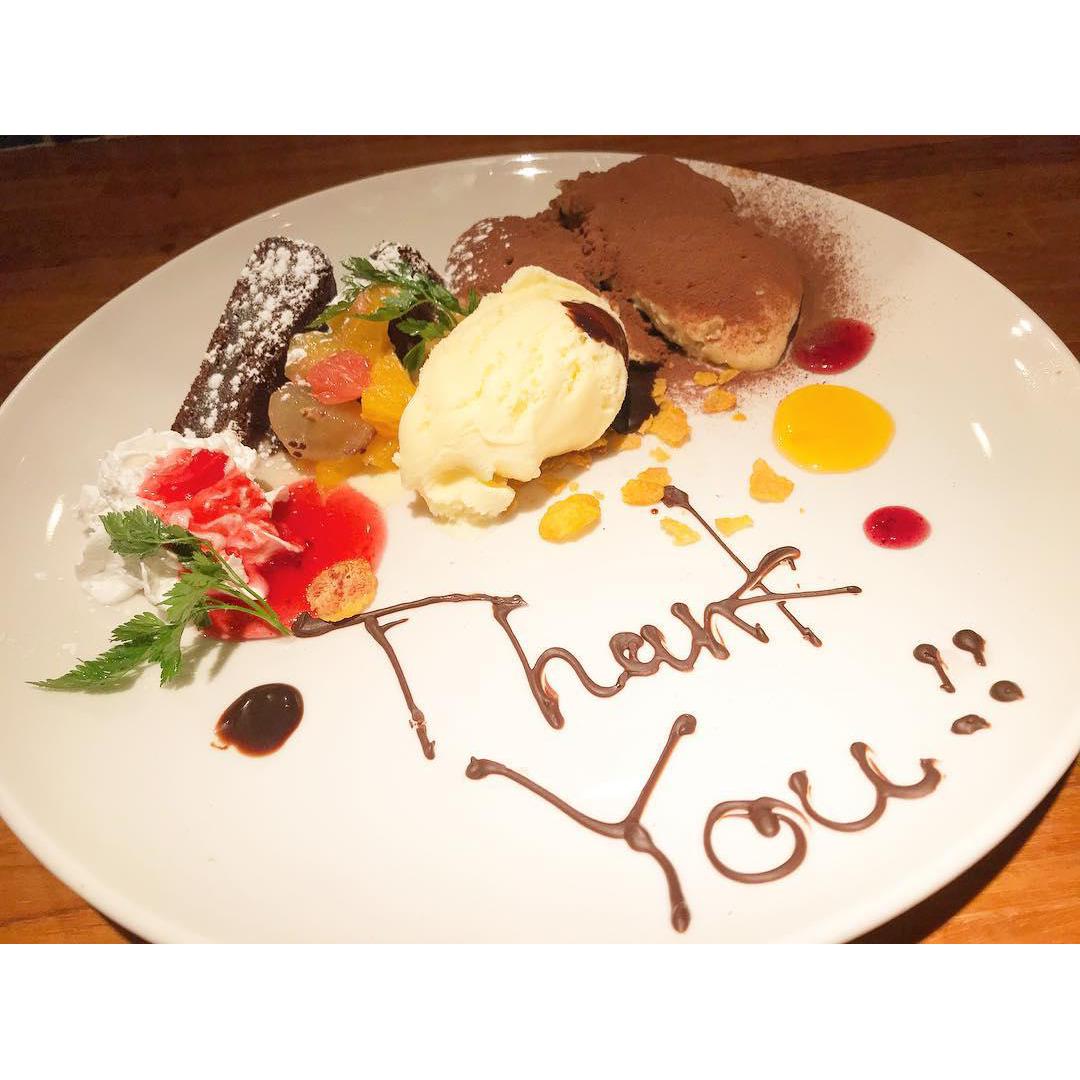 Thank
You!!